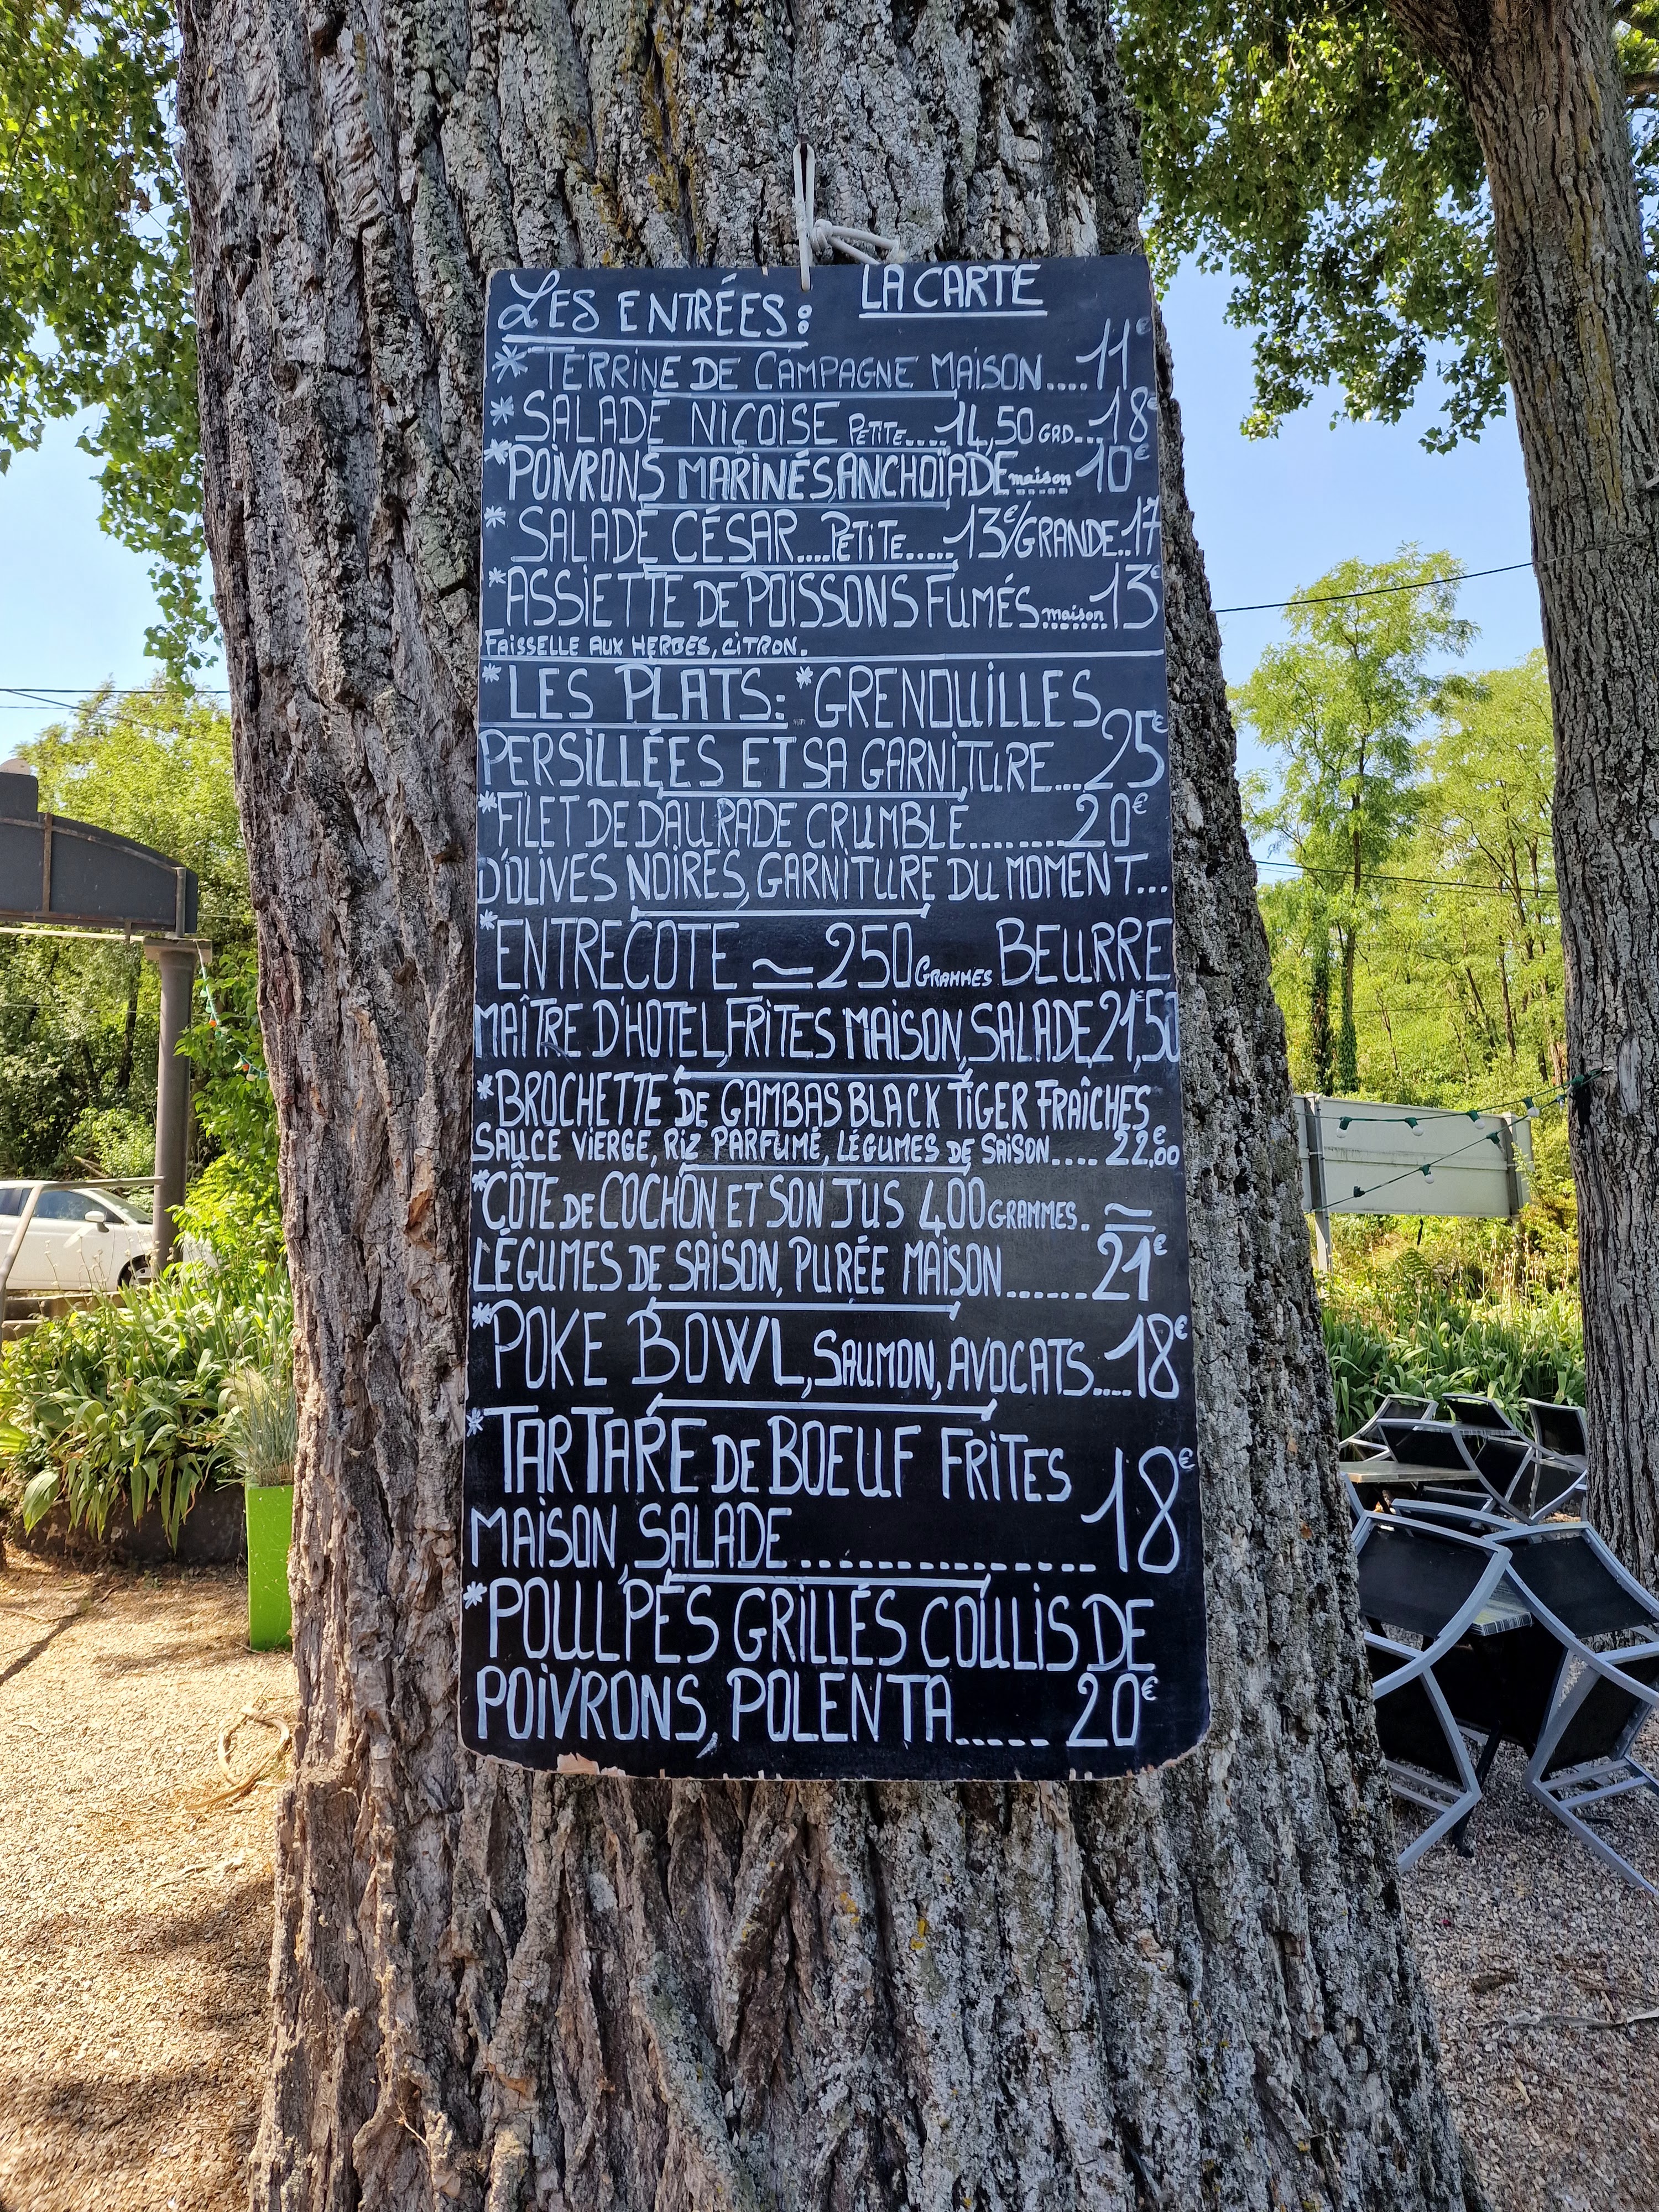 LA CARTE
LES ENTRÉES:
* TERRINE DE CAMPAGNE MAISON....11€
* SALADE NIÇOISE PETITE....14,50 GRD...18€
*POIVRONS MARINÉS, ANCHOÏADE maison 10€
* SALADE CÉSAR....PETITE.....13€/GRANDE..17
*ASSIETTE DE POISSONS FUMÉS maison 13€
FAISSELLE AUX HERBES, CITRON.
*LES PLATS: *GRENOUILLES
PERSILLÉES ET SA GARNITURE...25€
*FILET DE DAURADE CRUMBLE.........20€
D'OLIVES NOIRES, GARNITURE DU MOMENT...
*ENTRECOTE ≃ 250 GRAMMES BEURRE
MAÎTRE D'HOTEL, FRITES MAISON, SALADE, 21€,50
*BROCHETTE DE GAMBAS BLACK TIGER FRAÎCHES
SAUCE VIERGE, RIZ PARFUMÉ, LÉGUMES DE SAISON.... 22,€00
*CÔTE DE COCHON ET SON JUS 400 GRAMMES. ≃
LÉGUMES DE SAISON, PURÉE MAISON.......21€
*POKE BOWL, SAUMON, AVOCATS....18€
*TARTARE DE BOEUF FRITES
MAISON, SALADE................18€
*POULPES GRILLÉS COULIS DE
POIVRONS, POLENTA...... 20€